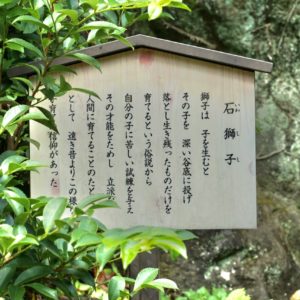 石獅子
獅子は 子を生むと
その子を 深い谷底に投げ
落とし生き残ったものだけを
育てるという俗説から
自分の子に苦しい試練を与え
その才能をためし 立派
人間に育てることのたと
として 遠き昔よりこの様
信仰があった